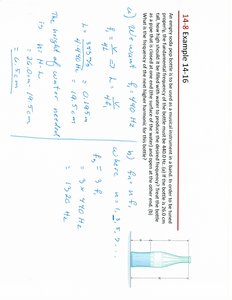 14-8 Example 14-16
An empty soda pop bottle is to be used as a musical instrument in a band. In order to be tuned
properly, the fundamental frequency of the bottle must be 440.0 Hz. (a) If the bottle is 26.0 cm
tall, how high should it be filled with water to produce the desired frequency? Treat the bottle
as a pipe that is closed at one end (the surface of the water) and open at the other end. (b)
What is the frequency of the next higher harmonic for this bottle?
a) We want f₁ = 440 Hz
f₁ = v/4L ⇒ L = v/4f₁
L = = 0.195 m
= 19.5 cm
The height of water needed
is H = H - L
= 26.0 cm - 19.5 cm
= 6.5 cm
b) fₙ = n f₁
where n = 1, 3, 5, 7...
f₃ = 3 f₁
= 3 × 440 Hz
= 1320 Hz